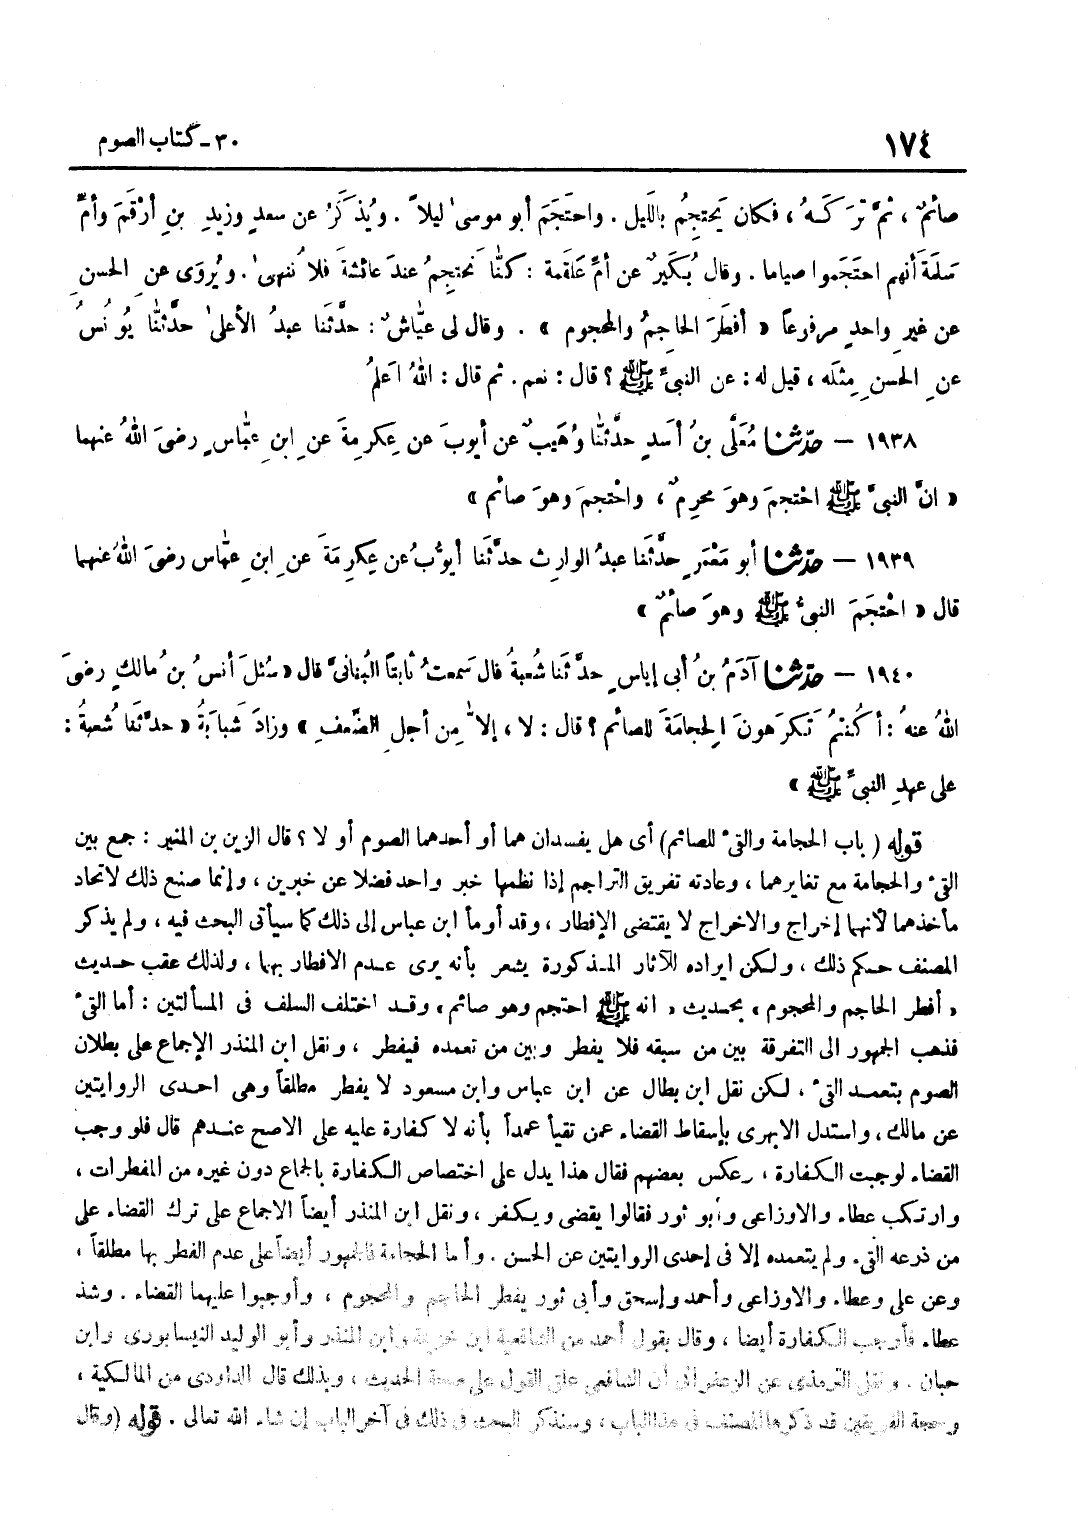 ١٧٤ ٣٠ - كتاب الصوم
صائمٌ ، ثمَّ تَرَكَهُ ، فكان يَحتجِمُ بالليل . واحتَجَمَ أبو موسى ليلاً . ويُذكَرُ عن سعدٍ وزيدِ بنِ أرْقمَ وأمِّ
سَلَمَةَ أنهم احتَجَموا صياما . وقال بُكَيرٌ عن أمِّ عَلقمةَ : كنَّا نَحتجِمُ عندَ عائشةَ فلا نُنهى . ويُروَى عنِ الحسنِ
عن غيرِ واحدٍ مرفوعاً « أفطَرَ الحاجِمُ والمحجوم » . وقال لى عيَّاشٌ : حدَّثَنا عبدُ الأعلى حدَّثَنا يُونُسُ
عنِ الحسنِ مِثلَه ، قيل له : عن النبىِّ ﷺ ؟ قال : نعم . ثم قال : اللهُ أعلمُ
١٩٣٨ — حدّثنا مُعَلَّى بنُ أسدٍ حدَّثَنا وُهَيبٌ عن أيوبَ عن عِكرِمةَ عنِ ابنِ عبَّاسٍ رضىَ اللهُ عنهما
« انَّ النبىَّ ﷺ احْتجمَ وهوَ محرِمٌ ، واحْتجمَ وهوَ صائم »
١٩٣٩ — حدّثنا أبو مَعْمَرٍ حدَّثَنا عبدُ الوارِث حدَّثَنا أيوُّبُ عن عِكرِمَةَ عنِ ابنِ عبَّاس رضىَ اللهُ عنهما
قال « احْتجَمَ النبىُّ ﷺ وهوَ صائمٌ »
١٩٤٠ — حدّثنا آدَمُ بنُ أبى إياسٍ حدَّثَنا شُعبةُ قال سَمعتُ ثابتاً البُنانىَّ قال « سُئلَ أنسُ بنُ مالكٍ رضىَ
اللهُ عنهُ : أكُنتمْ تَكرَهونَ الحِجامَةَ للصائم ؟ قال : لا ، إلاَّ مِن أجلِ الضَّعفِ » وزادَ شَبابَةُ « حدَّثَنا شُعبةُ :
على عهدِ النبىِّ ﷺ »
قوله ( باب الحجامة والقىء للصائم ) أى هل يفسدان هما أو أحدهما الصوم أو لا ؟ قال الزين بن المنير : جمع بين
القىء والحجامة مع تغايرهما ، وعادته تفريق التراجم إذا نظمها خبر واحد فضلا عن خبرين ، وإنما صنع ذلك لاتحاد
مأخذهما لأنهما إخراج والاخراج لا يقتضى الإفطار ، وقد أومأ ابن عباس إلى ذلك كما سيأتى البحث فيه ، ولم يذكر
المصنف حكم ذلك ، ولكن ايراده للآثار المذكورة يشعر بأنه يرى عدم الافطار بهما ، ولذلك عقب حديث
« أفطر الحاجم والمحجوم » بحديث « انه ﷺ احتجم وهو صائم » وقد اختلف السلف فى المسألتين : أما القىء
فذهب الجمهور الى التفرقة بين من سبقه فلا يفطر وبين من تعمده فيفطر ، ونقل ابن المنذر الإجماع على بطلان
الصوم بتعمد القىء ، لكن نقل ابن بطال عن ابن عباس وابن مسعود لا يفطر مطلقاً وهى احدى الروايتين
عن مالك ، واستدل الابهرى بإسقاط القضاء عمن تقيأ عمداً بأنه لا كفارة عليه على الاصح عندهم قال فلو وجب
القضاء لوجبت الكفارة ، وعكس بعضهم فقال هذا يدل على اختصاص الكفارة بالجماع دون غيره من المفطرات ،
وارتكب عطاء والاوزاعى وأبو ثور فقالوا يقضى ويكفر ، ونقل ابن المنذر أيضاً الاجماع على ترك القضاء على
من ذرعه القىء ولم يتعمده إلا فى إحدى الروايتين عن الحسن . وأما الحجامة فالجمهور أيضاً على عدم الفطر بها مطلقاً ،
وعن على وعطاء والاوزاعى وأحمد وإسحق وأبى ثور يفطر الحاجم والمحجوم ، وأوجبوا عليهما القضاء . وشذ
عطاء فأوجب الكفارة أيضا ، وقال بقول أحمد من الشافعية ابن خزيمة وابن المنذر وأبو الوليد النيسابورى وابن
حبان . ونقل الترمذى عن الزعفرانى أن الشافعى علق القول على صحة الحديث ، وبذلك قال الداودى من المالكية ،
وحجة الفريقين قد ذكرها المصنف فى هذا الباب ، وسنذكر البحث فى ذلك فى آخر الباب إن شاء الله تعالى . قوله (وقال